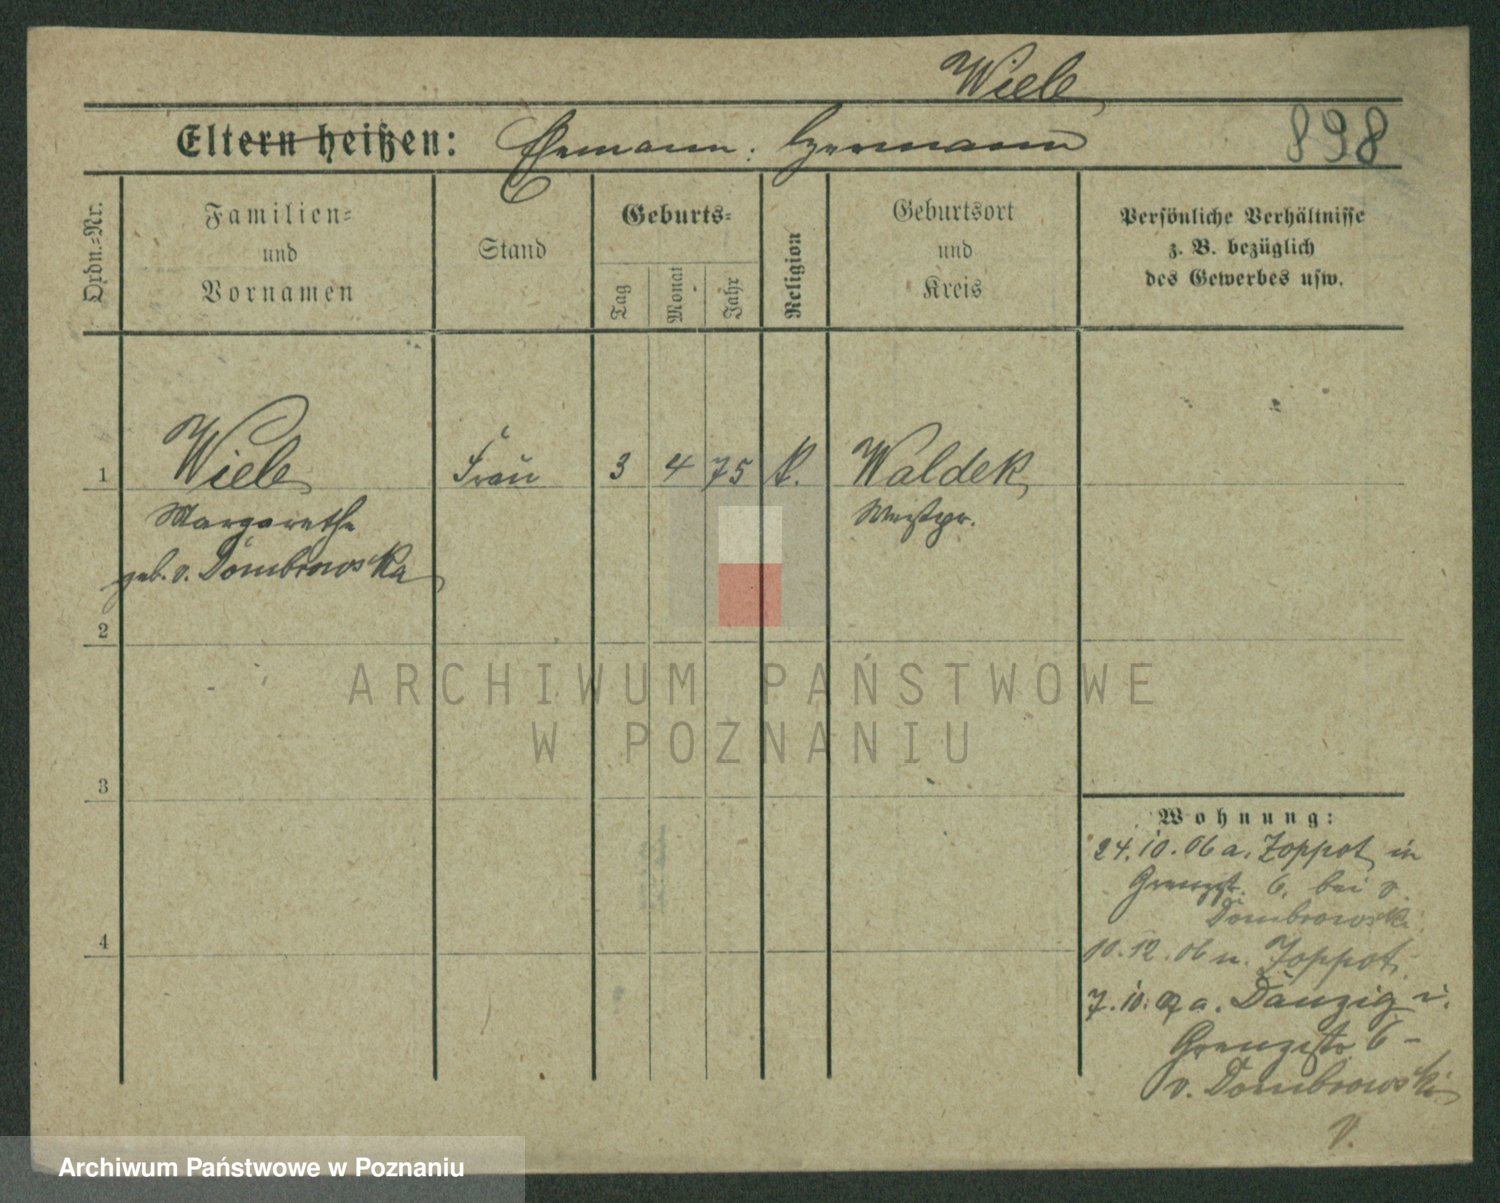 Wiele
Eltern heißen: Ehemann: Hermann 898
Ordn.-Nr.
Familien-
und
Vornamen
Stand
Geburts-
Tag
Monat
Jahr
Religion
Geburtsort
und
Kreis
Persönliche Verhältnisse
z. B. bezüglich
des Gewerbes usw.
1 Wiele Frau 3 4 75 k. Waldek
Margarethe Westpr.
geb. v. Dombrowska
2
3
4
Wohnung:
24.10.06 a. Zoppot in
Grenzstr. 6. bei v.
Dombrowski
10.12.06 n. Zoppot.
7.10.07 a. Danzig i.
Grenzstr. 6 -
v. Dombrowski
V.
ARCHIWUM PAŃSTWOWE
W POZNANIU
Archiwum Państwowe w Poznaniu